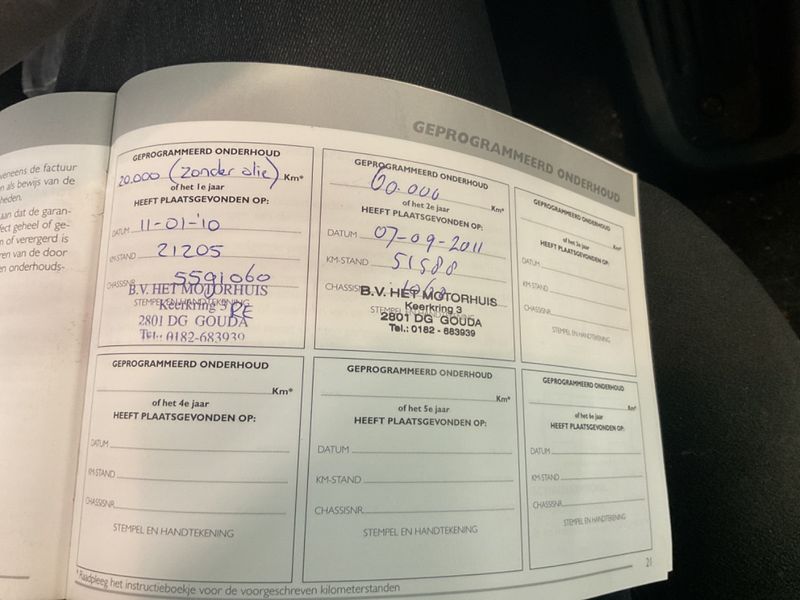 veneens de factuur
n als bewijs van de
heden.
aan dat de garan-
fect geheel of ge-
n of verergerd is
ren van de door
en onderhouds-
GEPROGRAMMEERD ONDERHOUD
GEPROGRAMMEERD ONDERHOUD
20.000 (zonder olie) Km*
of het 1e jaar
HEEFT PLAATSGEVONDEN OP:
DATUM 11-01-'10
KM-STAND 21205
CHASSISNR. 5591060
B.V. HET MOTORHUIS
STEMPEL EN HANDTEKENING
Keerkring 3
2801 DG GOUDA
Tel.: 0182-683939
GEPROGRAMMEERD ONDERHOUD
60.000 Km*
of het 2e jaar
HEEFT PLAATSGEVONDEN OP:
DATUM 07-09-2011
KM-STAND 51588
CHASSISNR. 1060
B.V. HET MOTORHUIS
STEMPEL EN HANDTEKENING
Keerkring 3
2801 DG GOUDA
Tel.: 0182 - 683939
GEPROGRAMMEERD ONDERHOUD
Km*
of het 3e jaar
HEEFT PLAATSGEVONDEN OP:
DATUM
KM-STAND
CHASSISNR.
STEMPEL EN HANDTEKENING
GEPROGRAMMEERD ONDERHOUD
Km*
of het 4e jaar
HEEFT PLAATSGEVONDEN OP:
DATUM
KM-STAND
CHASSISNR.
STEMPEL EN HANDTEKENING
GEPROGRAMMEERD ONDERHOUD
Km*
of het 5e jaar
HEEFT PLAATSGEVONDEN OP:
DATUM
KM-STAND
CHASSISNR.
STEMPEL EN HANDTEKENING
GEPROGRAMMEERD ONDERHOUD
Km*
of het 6e jaar
HEEFT PLAATSGEVONDEN OP:
DATUM
KM-STAND
CHASSISNR.
STEMPEL EN HANDTEKENING
* Raadpleeg het instructieboekje voor de voorgeschreven kilometerstanden
21